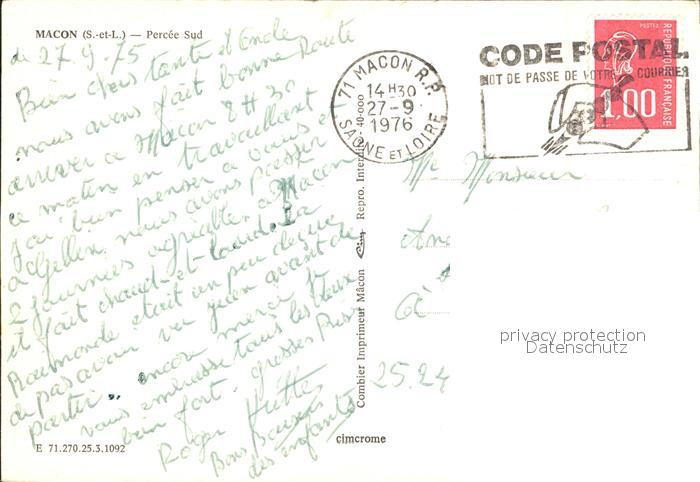 MACON (S.-et-L.) — Percée Sud
de 27-9-75
Bien chers tante et Oncle
nous avons fait bonne Route
arriver a Macon 8 H 30
ce matin en travaillant
J'ai bien penser a vous et
a Gellin nous avons passer
2 journées agréable a Macon
il fait chaud-et-lourd. La
Raimonde etait un peu deçue
de pas avoir vu Yuen avant de
partir. encore merci je
vous embrasse tous les deux
bien fort. grosses Bises
Roger
Bons Baisers
des enfants
E 71.270.25.3.1092
Combier Imprimeur Mâcon Cim Repro. Interdite 40-000
cimcrome
71 MACON R.P.
14 H 30
27-9
1976
SAONE ET LOIRE
CODE POSTAL
MOT DE PASSE DE VOTRE COURRIER
POSTES
1,00
REPUBLIQUE FRANÇAISE
Me Monsieur
25.24
privacy protection
Datenschutz